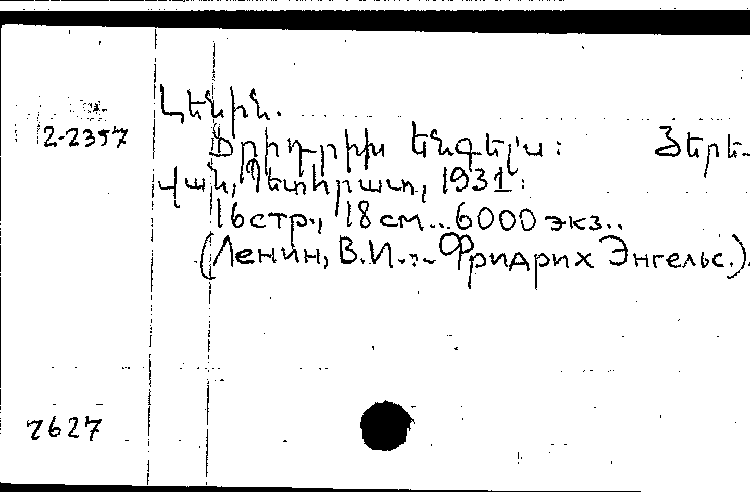 Լենին.
2-2357
Ֆրիդրիխ Ենգելս: Յերե-
վան, Պետհրատ, 1931:
16 стр., 18 см.. 6000 экз..
(Ленин, В.И.:- Фридрих Энгельс.).
7627